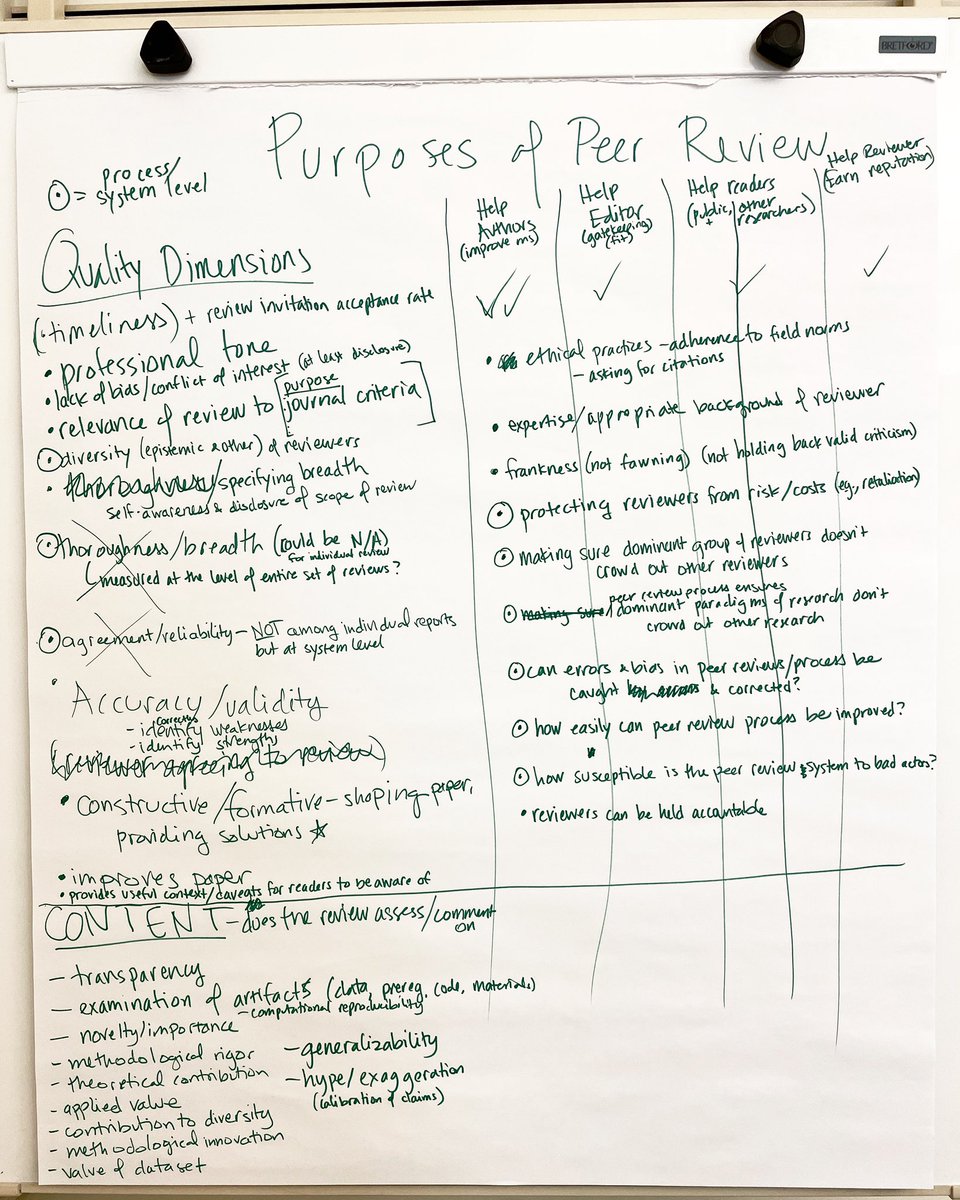 BRETFORD
Purposes of Peer Review
⊙ = process/
system level
Help
Authors
(improve ms)
Help
Editor
(gatekeeping)
(fit)
Help readers
(public, + other
researchers)
Help Reviewer
(Earn reputation)
Quality Dimensions
✓✓ ✓ ✓ ✓
(·timeliness) + review invitation acceptance rate
• professional tone
• lack of bias/conflict of interest (at least disclosure)
• relevance of review to [purpose
journal criteria]
⊙ diversity (epistemic & other) of reviewers
• thoroughness/specifying breadth
self-awareness & disclosure of scope of review
⊙ thoroughness/breadth (could be N/A)
for individual review
(measured at the level of entire set of reviews?
⊙ agreement/reliability – NOT among individual reports
but at system level
• Accuracy/validity
- correctly identify weaknesses
- identify strengths
(reviewer agreeing to review)
• constructive/formative – shaping paper,
providing solutions ☆
• improves paper
• provides useful context/caveats for readers to be aware of
• ethical practices – adherence to field norms
– asking for citations
• expertise/appropriate background of reviewer
• frankness (not fawning) (not holding back valid criticism)
⊙ protecting reviewers from risk/costs (eg., retaliation)
⊙ making sure dominant group of reviewers doesn't
crowd out other reviewers
peer review process ensures
⊙ making sure/dominant paradigms of research don't
crowd out other research
⊙ can errors & bias in peer reviews/process be
caught & corrected?
⊙ how easily can peer review process be improved?
⊙ how susceptible is the peer review system to bad actors?
• reviewers can be held accountable
CONTENT – does the review assess/comment
on
– transparency
– examination of artifacts (data, prereg, code, materials)
– computational reproducibility
– novelty/importance
– methodological rigor
– theoretical contribution
– applied value
– contribution to diversity
– methodological innovation
– value of dataset
– generalizability
– hype/exaggeration
(calibration of claims)